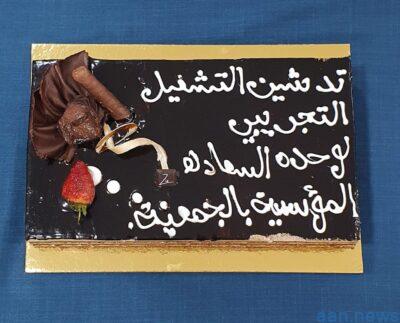 تدشين التشغيل
التجريبي
لوحده السعاده
المؤسسية بالجمعية.
aan.news